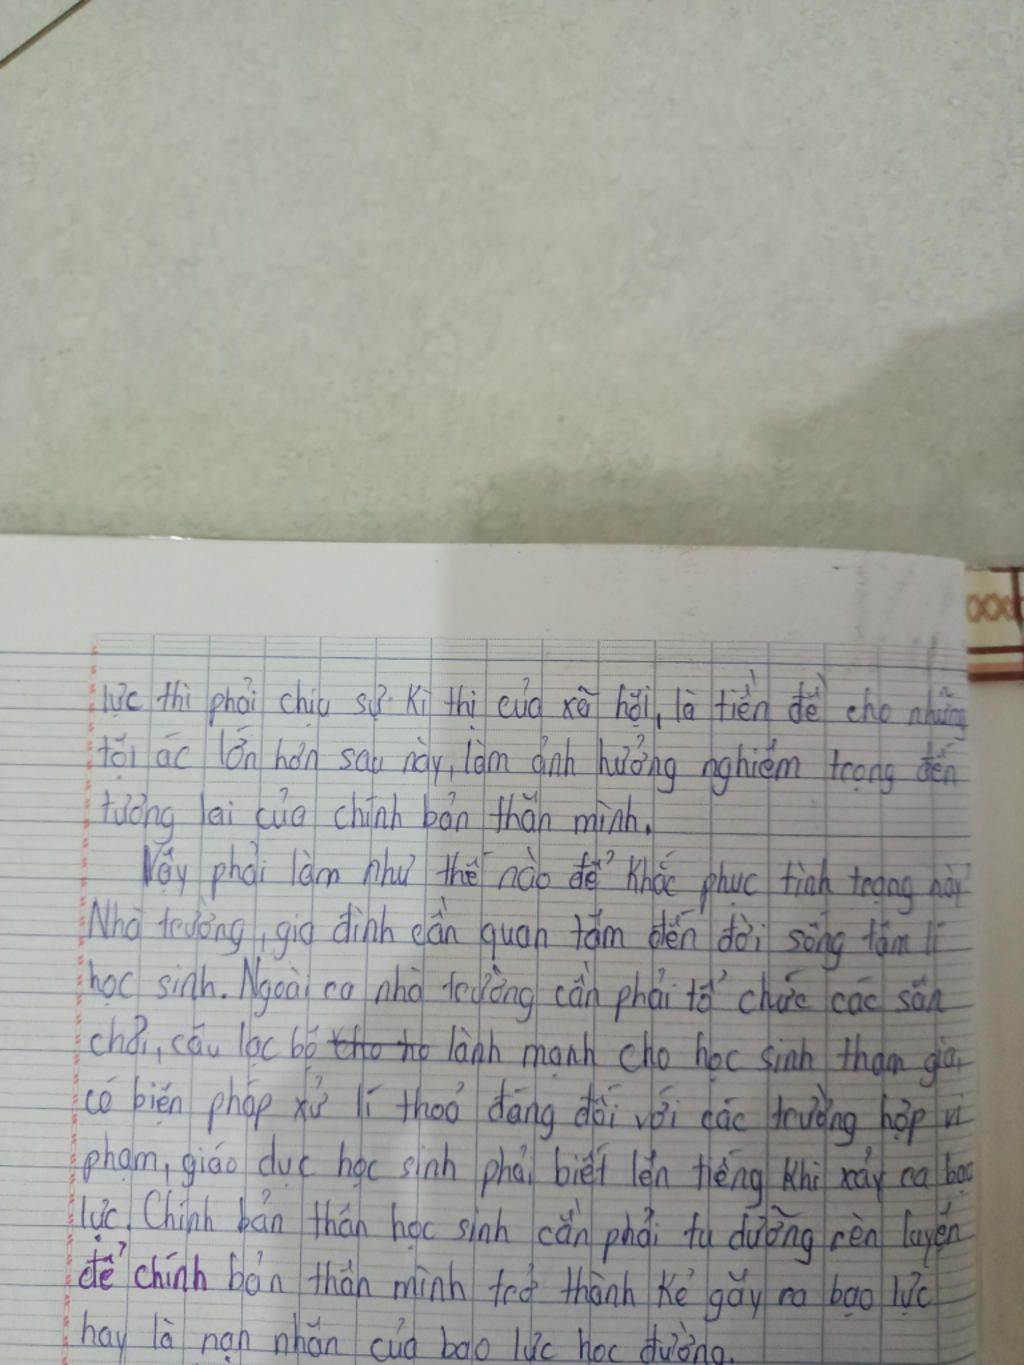 lực thì phải chịu sự kì thị của xã hội, là tiền đề cho những
tội ác lớn hơn sau này, làm ảnh hưởng nghiêm trọng đến
tương lai của chính bản thân mình.
Vậy phải làm như thế nào để khắc phục tình trạng này
Nhà trường, gia đình cần quan tâm đến đời sống tâm lí
học sinh. Ngoài ra nhà trường cần phải tổ chức các sân
chơi, câu lạc bộ lành mạnh cho học sinh tham gia,
có biện pháp xử lí thoả đáng đối với các trường hợp vi
phạm, giáo dục học sinh phải biết lên tiếng khi xảy ra bạo
lực. Chính bản thân học sinh cần phải tu dưỡng rèn luyện
để chính bản thân mình trở thành kẻ gây ra bạo lực
hay là nạn nhân của bạo lực học đường.